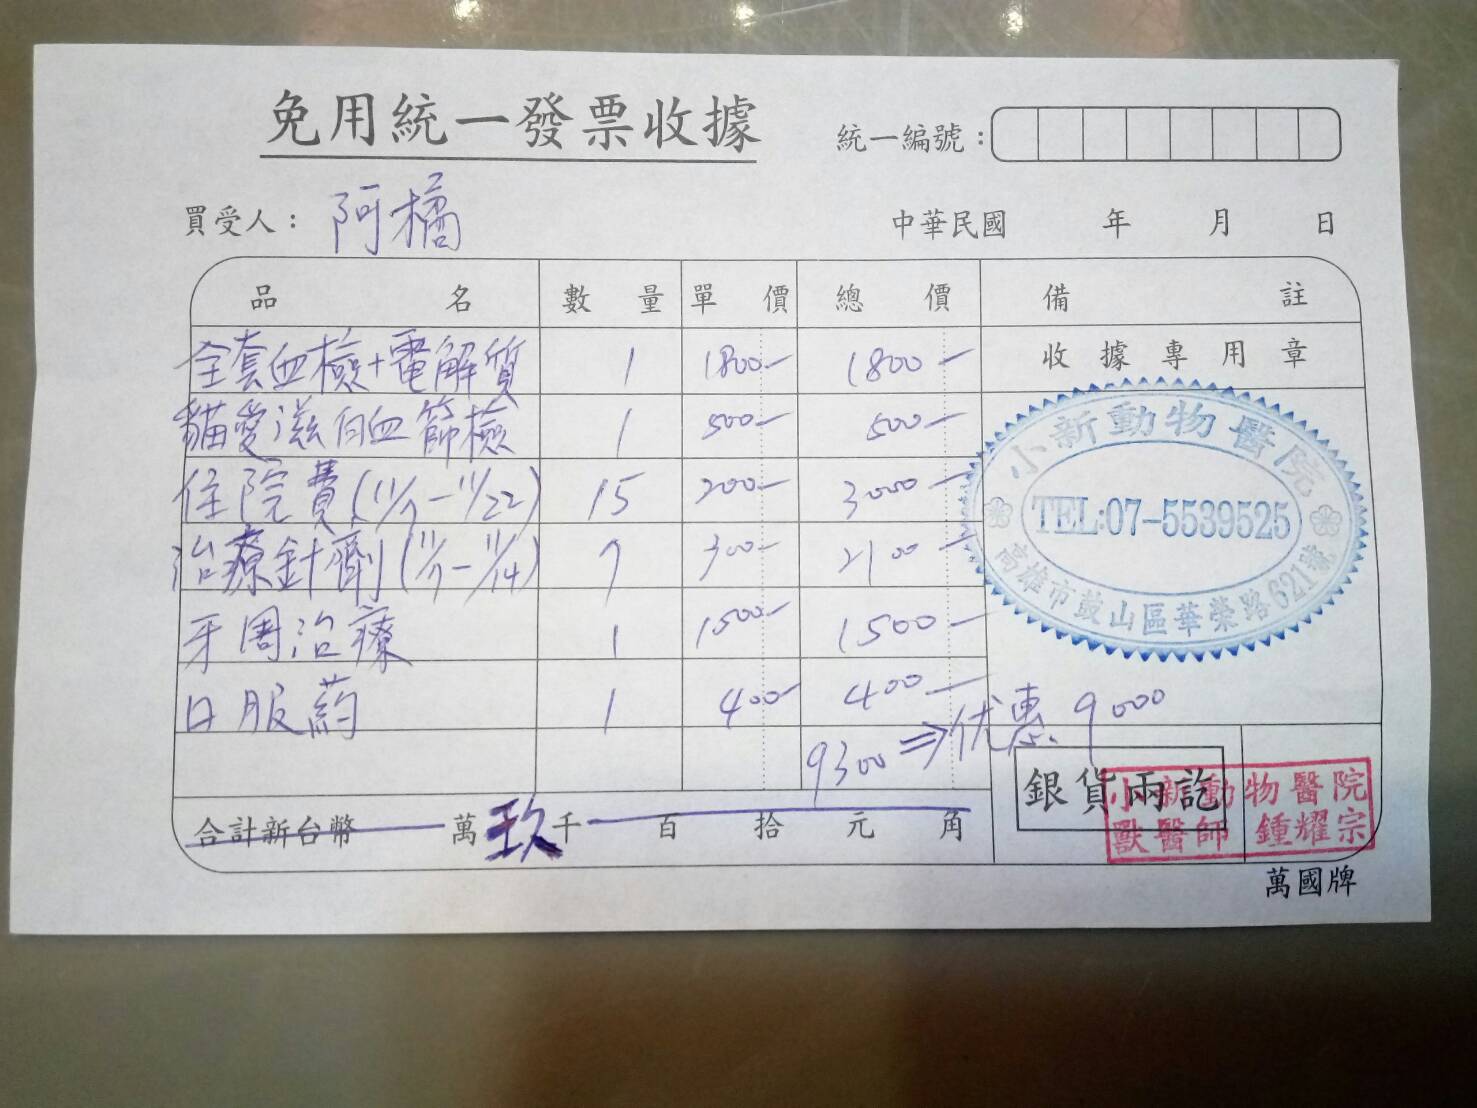 免用統一發票收據
統一編號：
買受人：阿橘
中華民國 年 月 日
品名 數量 單價 總價 備註
全套血檢+電解質 1 1800- 1800-
收據專用章
貓愛滋白血篩檢 1 500- 500-
住院費(11/7-11/22) 15 200- 3000-
治療針劑(11/7-11/14) 7 300- 2100-
牙周治療 1 1500- 1500-
口服葯 1 400- 400-
小新動物醫院
TEL:07-5539525
高雄市鼓山區華榮路621號
9300⇒优惠 9000
合計新台幣 萬玖千 百 拾 元 角
銀貨兩訖
小新動物醫院
獸醫師 鍾耀宗
萬國牌